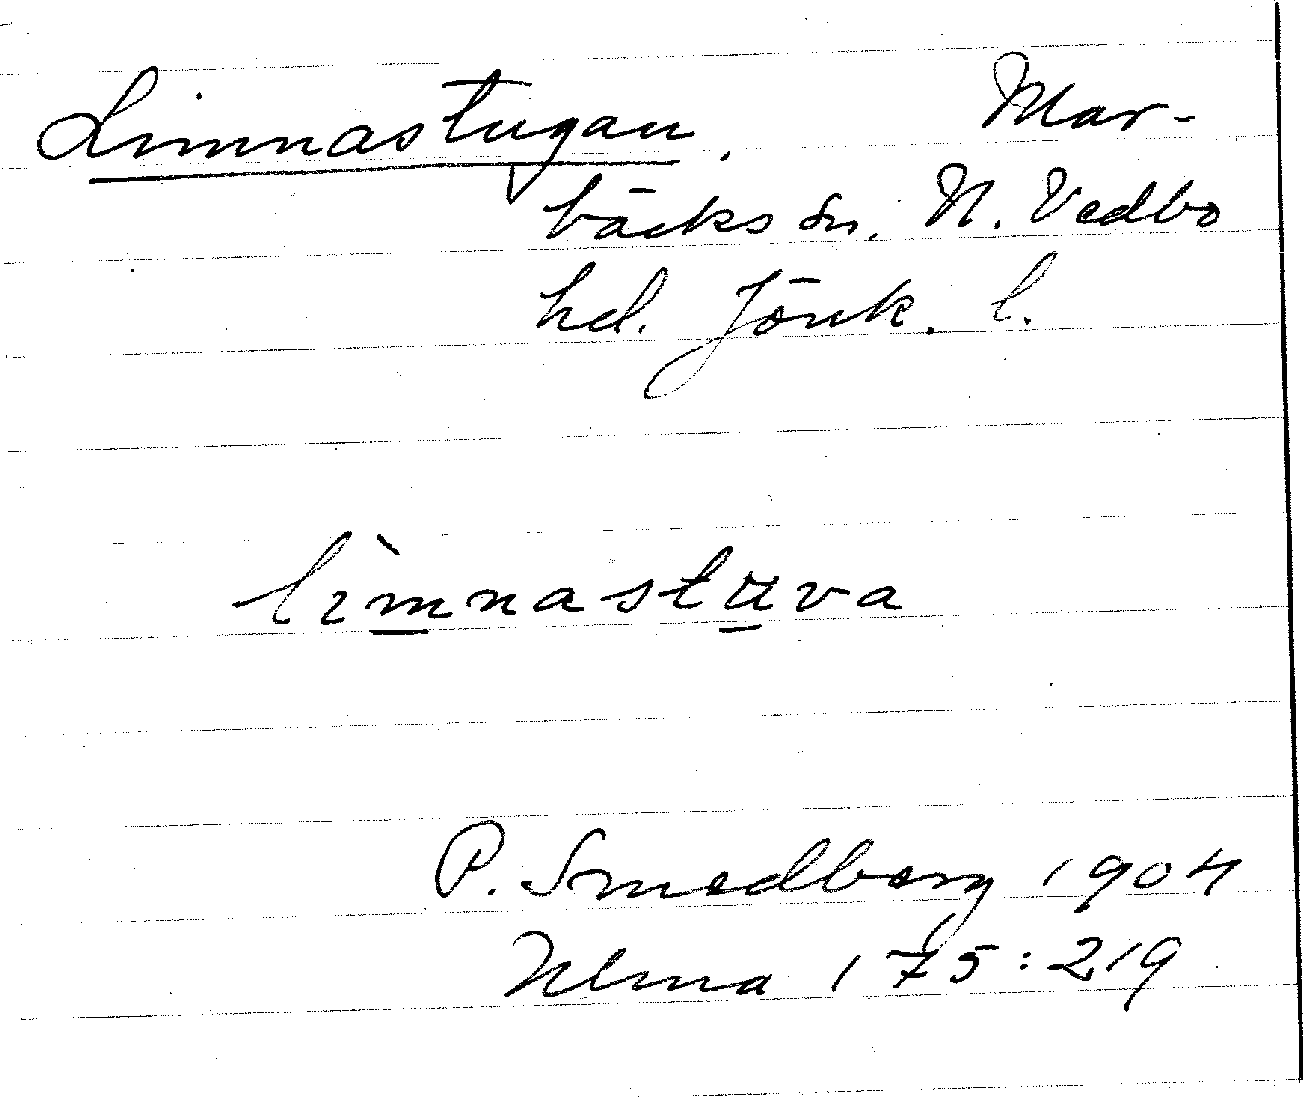 Limnastugan. Mar-
bäcks sn. N. Vedbo
hd. Jönk. l.
lìmnastuva
P. Smedberg 1904
Ulma 175:219